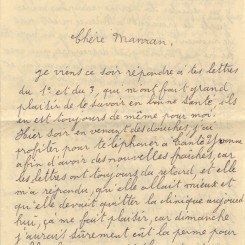 Chère Maman,
je viens ce soir répondre à tes lettres
du 1º et du 3, qui m'ont fait grand
plaisir de te savoir en bonne santé, ils
en est toujours de même pour moi.
Hier soir en venant des douches, j'ai
profiter pour téléphoner à tante Yvonne
afin d'avoir des nouvelles fraîches, car
les lettres ont toujours du retard, et elle
m'a répondu, qu'elle allait mieux et
qu'elle devait quitter la clinique aujourd
hui, ça me fait plaisir, car dimanche
j'aurais sûrement eut la perme pour